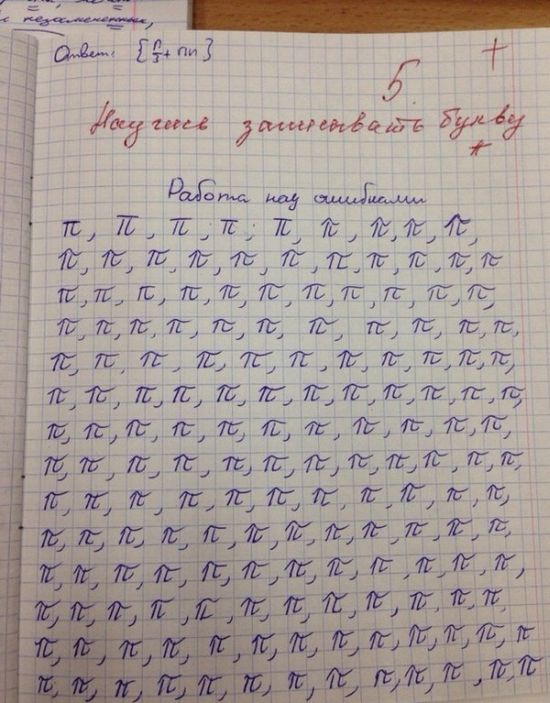 и незамененных,
Ответ: {п/3 + пn}
5 +
Научись записывать букву
π
Работа над ошибками
π, π, π, π; π, π, π, π, π,
π, π, π, π, π, π, π, π, π, π, π
π, π, π, π, π, π, π, π, π, π, π,
π, π, π, π, π, π, π, π, π, π, π,
π, π, π, π, π, π, π, π, π, π, π,
π, π, π, π, π, π, π, π, π, π, π, π,
π, π, π, π, π, π, π, π, π, π, π,
π, π, π, π, π, π, π, π, π, π, π, π,
π, π, π, π, π, π, π, π, π, π, π,
π, π, π, π, π, π, π, π, π, π, π, π,
π, π, π, π, π, π, π, π, π, π, π, π,
π, π, π, π, π, π, π, π, π, π, π, π,
π, π, π, π, π, π, π, π, π, π, π, π, π
π, π, π, π, π, π, π, π, π, π, π, π, π